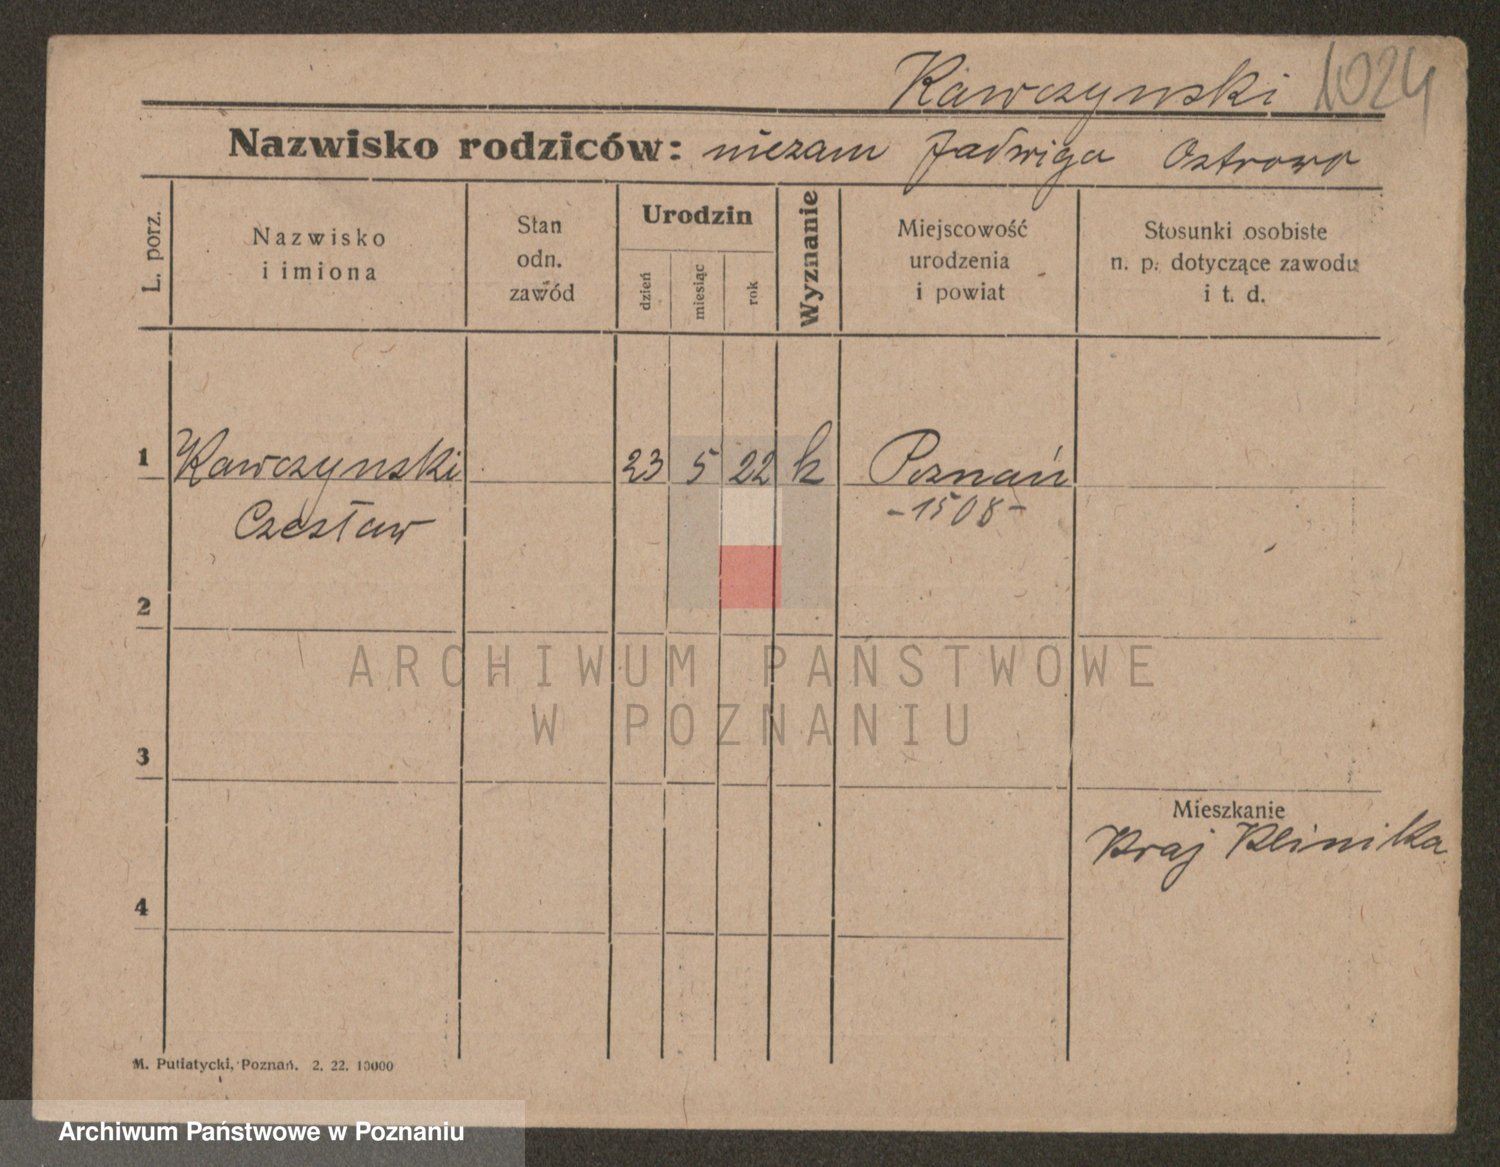 Kawczynski 1024
Nazwisko rodziców: niezam Jadwiga Ostrowo
L. porz.
Nazwisko
i imiona
Stan
odn.
zawód
Urodzin
dzień
miesiąc
rok
Wyznanie
Miejscowość
urodzenia
i powiat
Stosunki osobiste
n. p. dotyczące zawodu
i t. d.
1 Kawczynski 23 5 22 k Poznań
Czesław - 1508 -
2
ARCHIWUM PAŃSTWOWE
W POZNANIU
3
Mieszkanie
Kraj Klinika
4
M. Putiatycki, Poznań. 2. 22. 10000
Archiwum Państwowe w Poznaniu